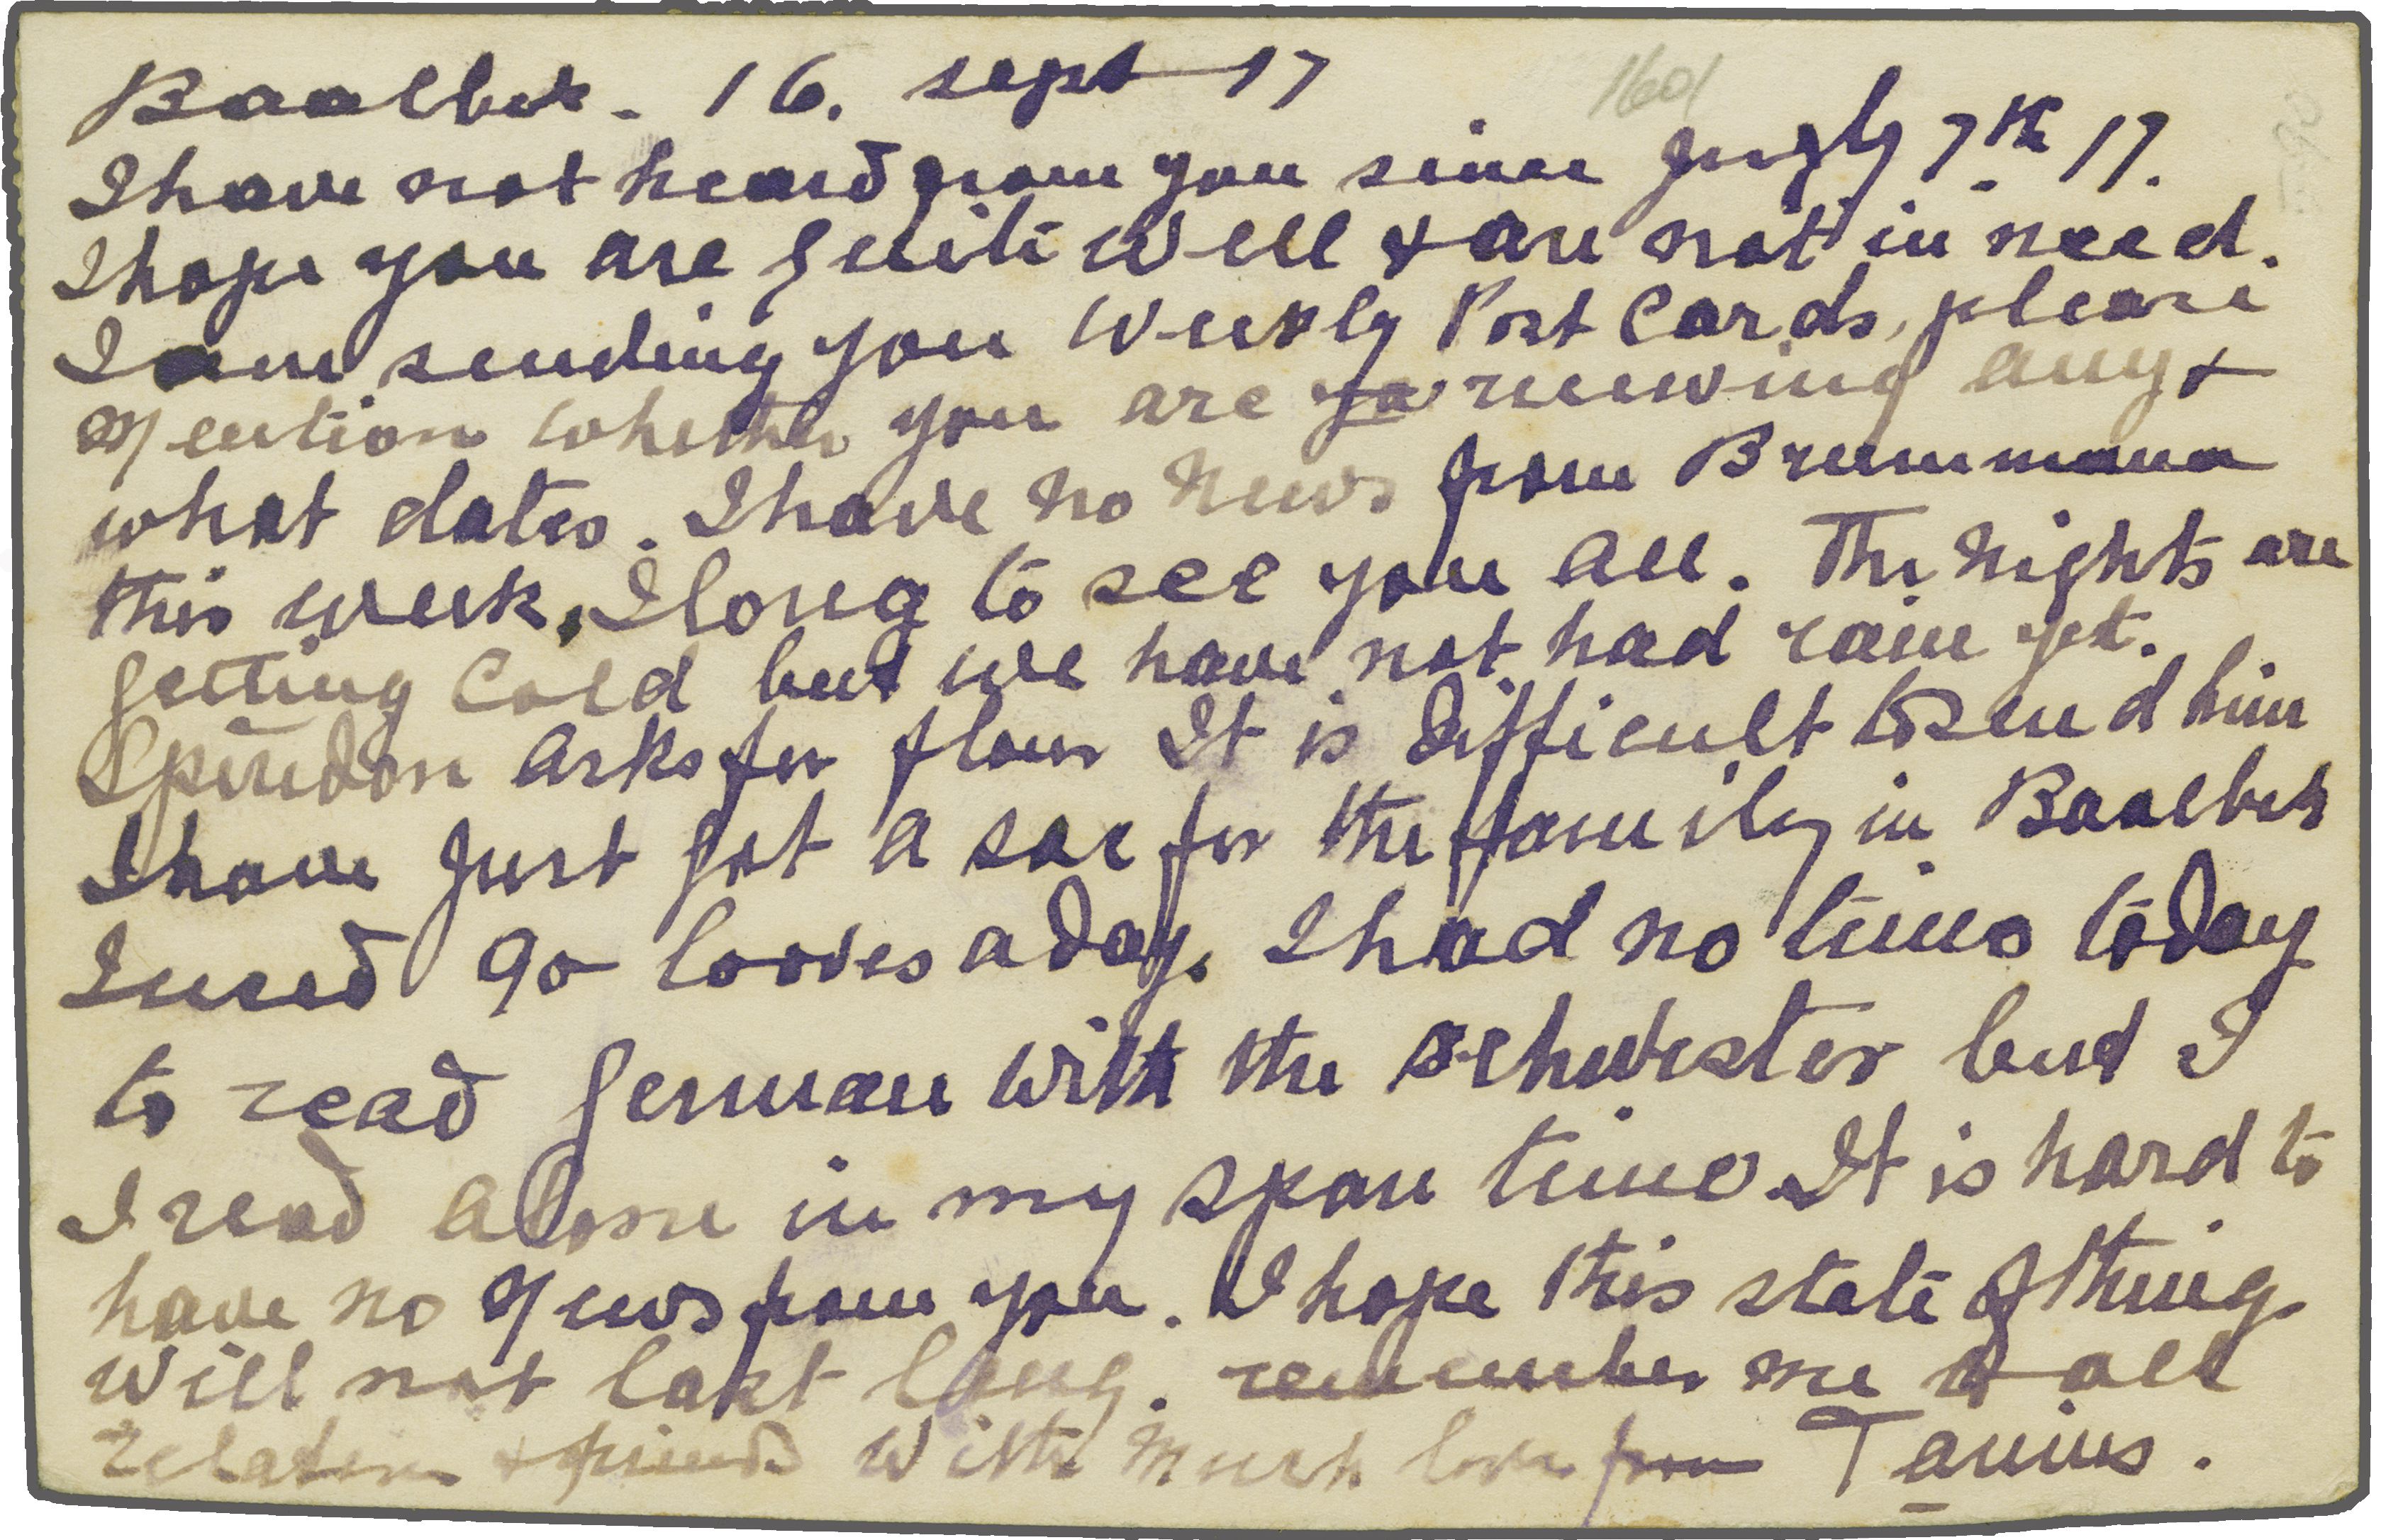 Baalbek. 16. sept 17
1601
I have not heard from you since July 7th 17.
I hope you are quite well & are not in need.
I am sending you Weekly Post Cards, please
Mention whether you are receiving any &
what dates. I have no news from Brummana
this week, I long to see you all. The nights are
getting cold but we have not had rain yet.
Spiridon asks for flour It is difficult to send him
I have just got a sac for the family in Baalbek
I need 90 looves a day. I had no time today
to read german with the schwester but I
I read alone in my spare time. It is hard to
have no News from you. I hope this state of things
will not last long. remember me to all
relations & friends With much love from Tanius.